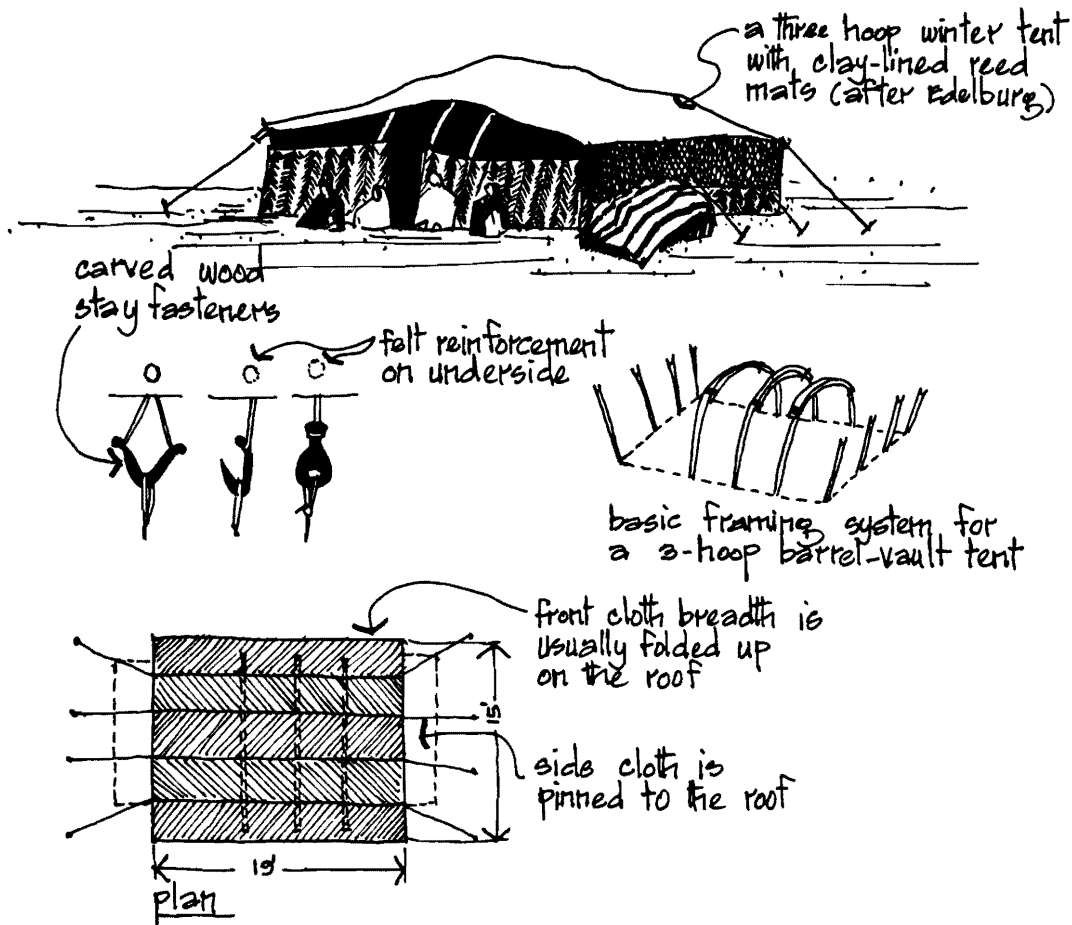 a three hoop winter tent
with clay-lined reed
mats (after Edelburg)
carved wood
stay fasteners
felt reinforcement
on underside
basic framing system for
a 3-hoop barrel-vault tent
front cloth breadth is
usually folded up
on the roof
15'
side cloth is
pinned to the roof
19'
plan